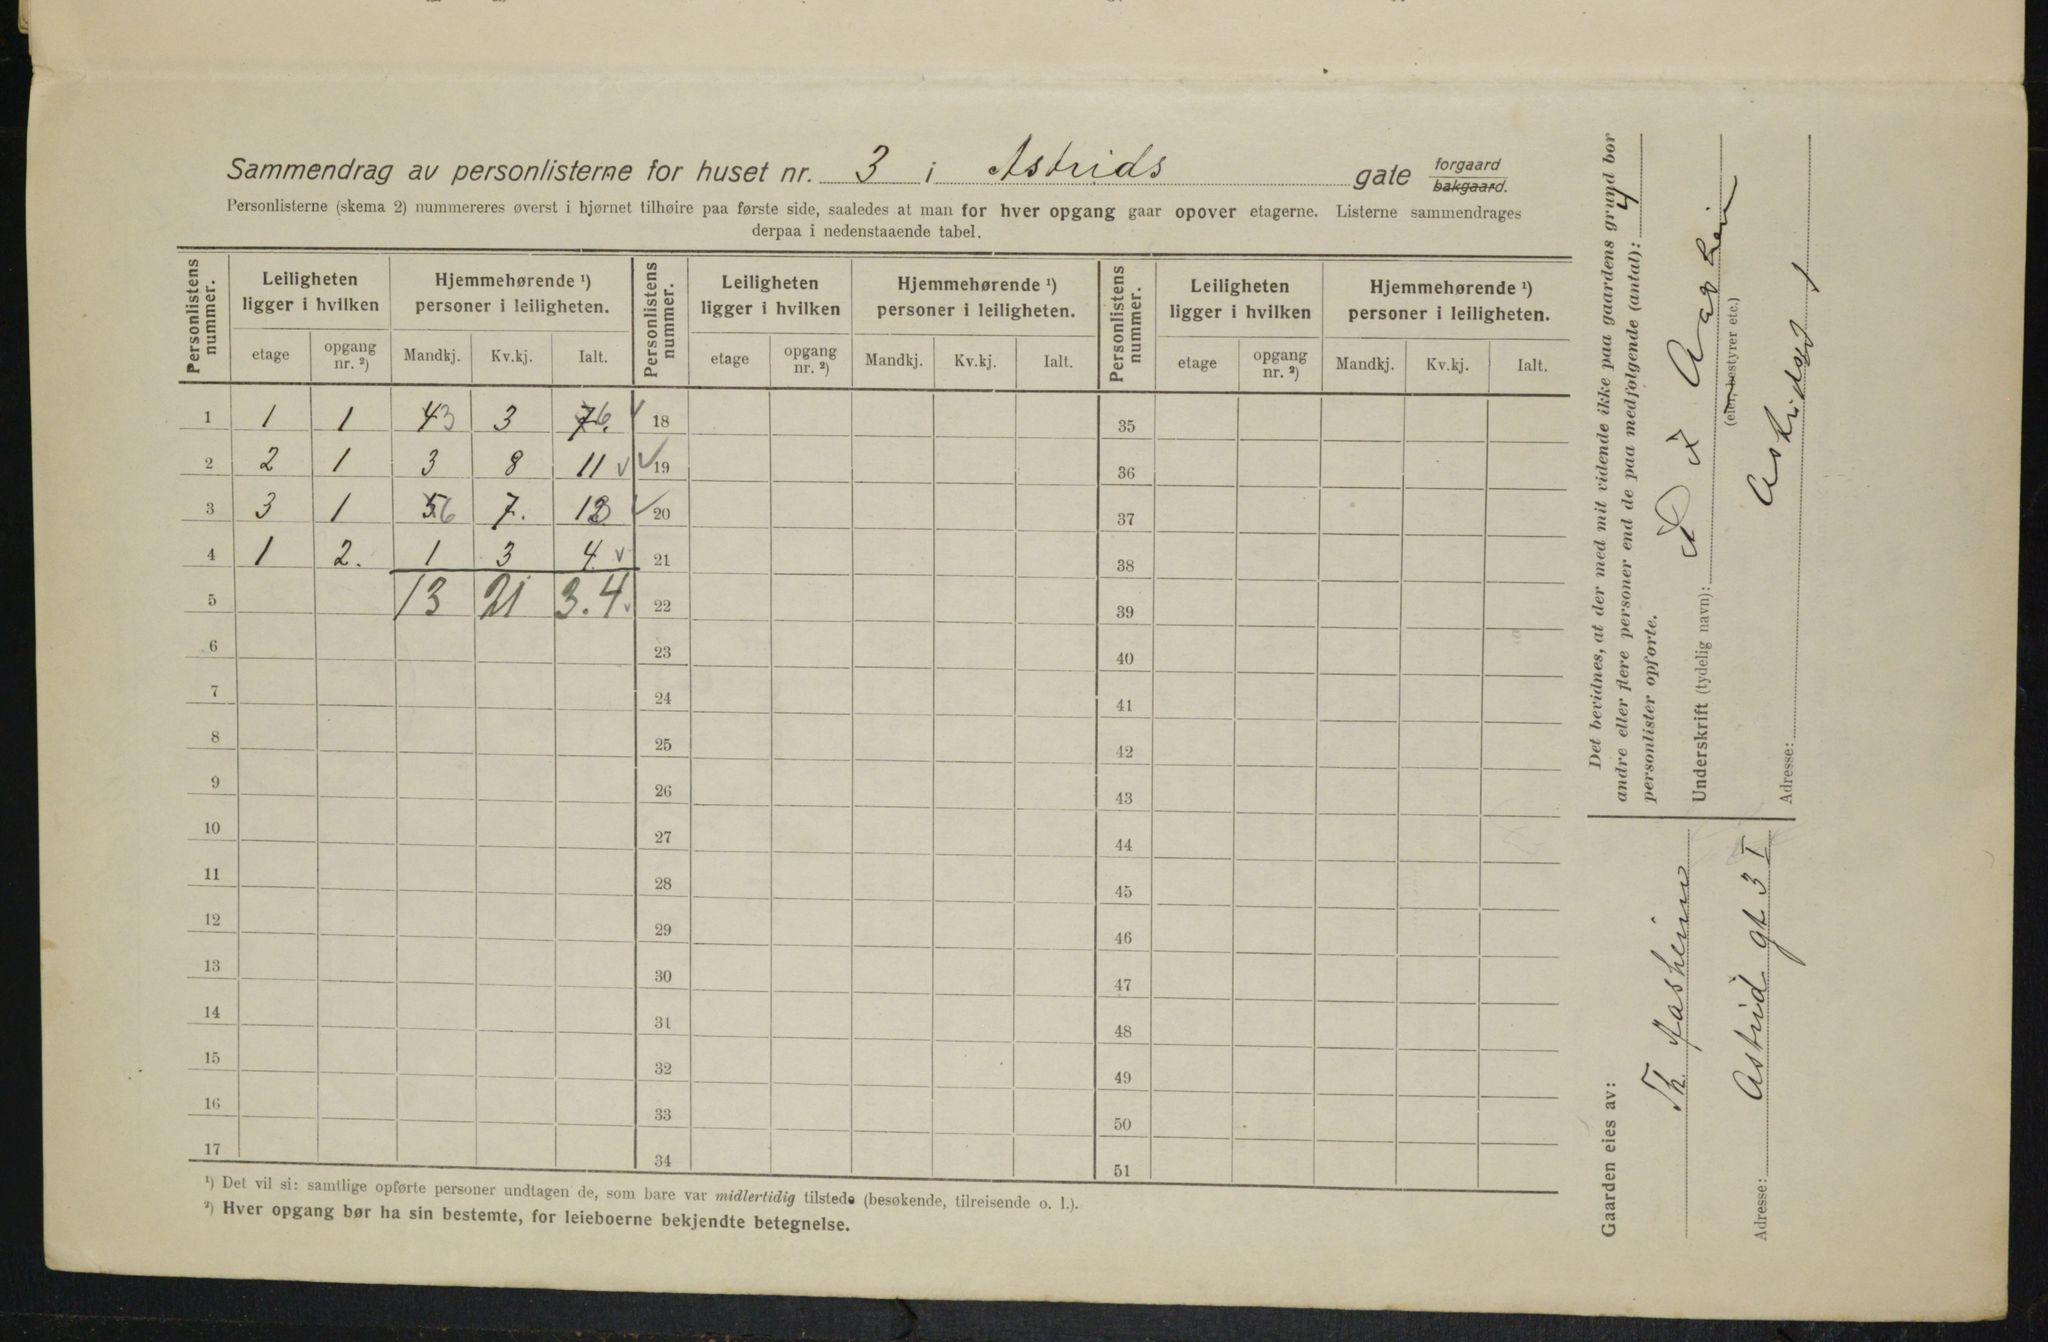 Sammendrag av personlisterne for huset nr. 3 i Astrids gate forgaard bakgaard.
Personlisterne (skema 2) nummereres øverst i hjørnet tilhøire paa første side, saaledes at man for hver opgang gaar opover etagerne. Listerne sammendrages
derpaa i nedenstaaende tabel.
Personlistens nummer. Leiligheten ligger i hvilken Hjemmehørende ¹) personer i leiligheten. Personlistens nummer. Leiligheten ligger i hvilken Hjemmehørende ¹) personer i leiligheten. Personlistens nummer. Leiligheten ligger i hvilken Hjemmehørende ¹) personer i leiligheten.
etage opgang nr. ²) Mandkj. Kv.kj. Ialt. etage opgang nr. ²) Mandkj. Kv.kj. Ialt. etage opgang nr. ²) Mandkj. Kv.kj. Ialt.
1 1 1 43 3 76. 18 35
2 2 1 3 8 11 19 36
3 3 1 56 7. 13 20 37
4 1 2. 1 3 4 21 38
5 13 21 3.4 22 39
6 23 40
7 24 41
8 25 42
9 26 43
10 27 44
11 28 45
12 29 46
13 30 47
14 31 48
15 32 49
16 33 50
17 34 51
¹) Det vil si: samtlige opførte personer undtagen de, som bare var midlertidig tilstede (besøkende, tilreisende o. l.).
²) Hver opgang bør ha sin bestemte, for leieboerne bekjendte betegnelse.
Det bevidnes, at der med mit vidende ikke paa gaardens grund bor
andre eller flere personer end de paa medfølgende (antal): 4
personlister opførte.
Underskrift (tydelig navn):
(eier, bestyrer etc.)
Adresse: Astridsgt 1
Gaarden eies av:
Th. Aasheim
Adresse: Astrid gt 3 I